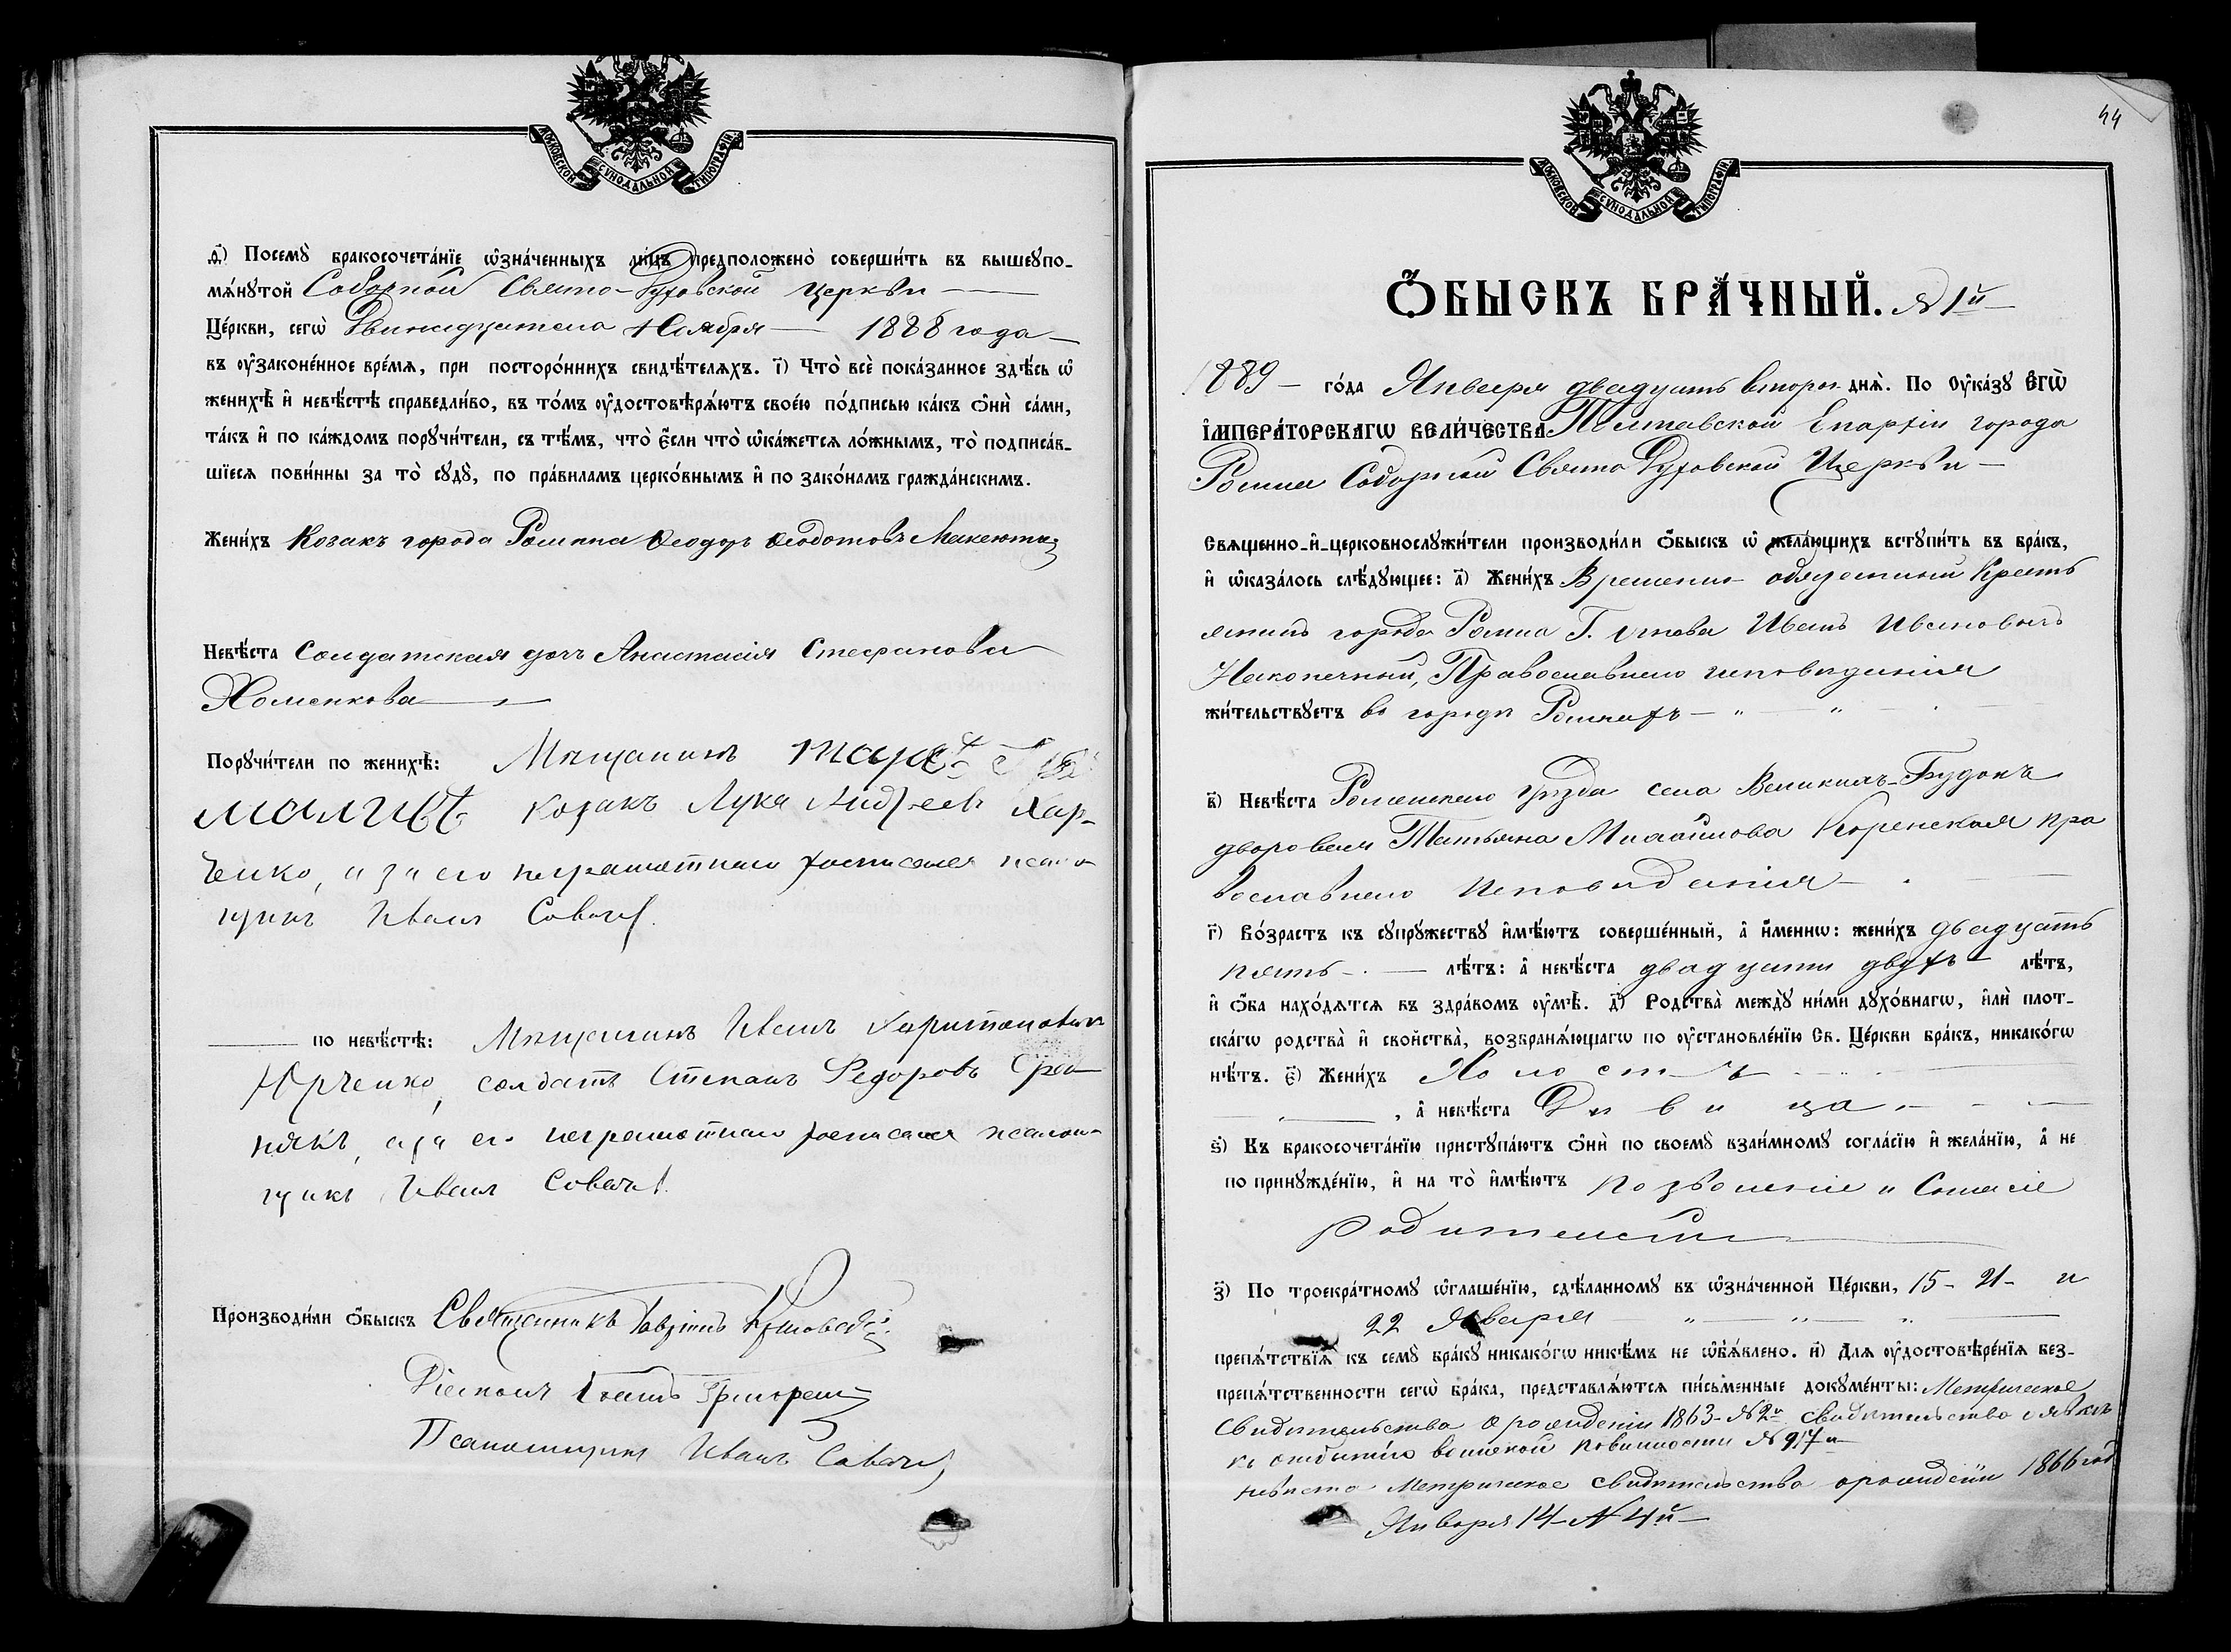 МОСКОВСКОЙ СѴНОДАЛЬНОЙ ТИПОГРАФІИ
д҃) Посемꙋ̀ бракосочета́нїе ѡ҆зна́ченныхъ ли́цъ предположено̀ соверши́ть въ вышеꙋпо-
мѧ́нꙋтой Соборной Свято-Духовской Церкви
Це́ркви, сегѡ̀ Двинадцатого Ноября 1888 года
въ ᲂу҆законе́нное вре́мѧ, при посторо́ннихъ свидѣ́телѧхъ. і҃) Что̀ всѐ пока́занное здѣ́сь ѡ҆
женихѣ̀ и҆ невѣ́стѣ справедли́во, въ то́мъ ᲂу҆достовѣрѧ́ютъ свое́ю по́дписью ка́къ ѻ҆нѝ са́ми,
та́къ и҆ по ка́ждомъ порꙋчи́тели, съ тѣ́мъ, что̀ є҆́сли что̀ ѡ҆ка́жетсѧ ло́жнымъ, то̀ подписа́в-
шїесѧ пови́нны за то̀ сꙋдꙋ̀, по пра́виламъ церко́внымъ и҆ по зако́намъ гражда́нскимъ.
Жени́хъ Козакъ города Ромна Ѳеодоръ Ѳеодотовъ
Невѣ́ста Солдатская дочь Анастасія Стефанова
Хоменкова
Порꙋчи́тели по женихѣ̀: Мѣщанинъ
козакъ Лука Андреевъ Хар-
ченко, а за его неграмотнаго росписался псалом-
щикъ Иванъ Савичъ
по невѣ́стѣ: Мѣщанинъ Иванъ Харитоновъ
Юрченко, солдатъ Степанъ Федоровъ
а за его неграмотнаго росписался псалом-
щикъ Иванъ Савичъ
Производи́ли ѻ҆́быскъ Священникъ
Діаконъ
Псаломщикъ Иванъ Савичъ
44
МОСКОВСКОЙ СѴНОДАЛЬНОЙ ТИПОГРАФІИ
Ѻ҆́БЫСКЪ БРА́ЧНЫЙ. № 1й
1889 го́да Января двадцать второго днѧ̀. По ᲂу҆ка́зꙋ Є҆ГѠ̀
І҆МПЕРА́ТОРСКАГѠ ВЕЛИ́ЧЕСТВА Полтавской Епархіи города
Ромна Соборной Свято Духовской Церкви
Свѧщенно-и҆-церковнослꙋжи́тели производи́ли ѻ҆́быскъ ѡ҆ жела́ющихъ встꙋпи́ть въ бра́къ,
и҆ ѡ҆каза́лось слѣ́дꙋющее: а҃) Жени́хъ Временно обязанный Кресть
янинъ города Ромна Г. Иванъ Ивановъ
Наконечный, Православнаго исповѣданія
жи́тельствꙋетъ въ городѣ Ромнахъ
в҃) Невѣ́ста Роменскаго уѣзда села Великихъ-Будокъ
дворовая Татьяна Михайлова пра
вославнаго исповѣданія
г҃) Во́зрастъ къ сꙋпрꙋ́жествꙋ и҆мѣ́ютъ соверше́нный, а҆ и҆́меннѡ: жени́хъ двадцать
пять лѣ́тъ: а҆ невѣ́ста двадцати двухъ лѣ́тъ,
и҆ ѻ҆́ба нахо́дѧтсѧ въ здра́вомъ ᲂу҆мѣ̀. д҃) Родства̀ междꙋ̀ ни́ми дꙋхо́внагѡ, и҆лѝ плот-
ска́гѡ родства̀ и҆ свойства̀, возбранѧ́ющагѡ по ᲂу҆становле́нїю Св. Це́ркви бра́къ, никако́гѡ
нѣ́тъ. є҃) Жени́хъ Холостъ
, а҆ невѣ́ста Дѣвица
ѕ҃) Къ бракосочета́нїю пристꙋпа́ютъ ѻ҆нѝ по своемꙋ̀ взаи́мномꙋ согла́сїю и҆ жела́нїю, а҆ не
по принꙋжде́нїю, и҆ на то̀ и҆мѣ́ютъ позволеніе и Согласіе
родителей
з҃) По троекра́тномꙋ ѡ҆глаше́нїю, сдѣ́ланномꙋ въ ѡ҆зна́ченной Це́ркви, 15- 21- и
22 Января
препѧ́тствїѧ къ семꙋ̀ бра́кꙋ никако́гѡ никѣ́мъ не ѡ҆б̾ѧ́влено. и҃) Длѧ ᲂу҆достовѣре́нїѧ без-
препѧ́тственности сегѡ̀ бра́ка, представлѧ́ютсѧ пи́сьменные докꙋме́нты: Метрическое
Свидѣтельство о рожденіи 1863 № 2й свидѣтельство о явкѣ
къ отбытію воинской повинности № 917й
невѣста Метрическое свидѣтельство о рожденіи 1866 год
Января 14 № 4й